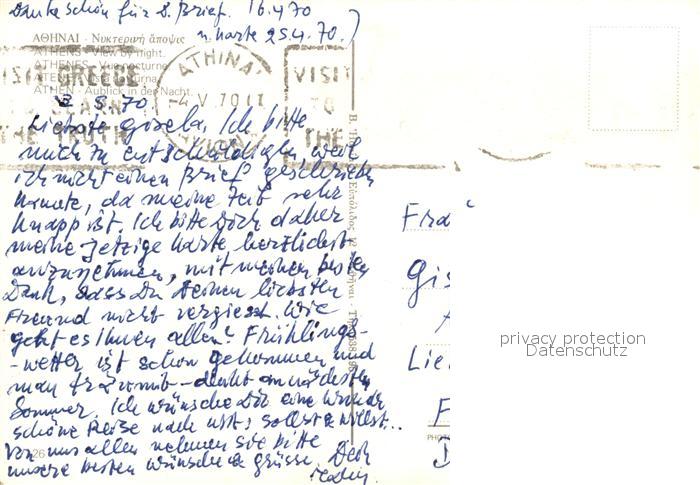 Danke schön für D. Brief. 16.4.70
u. Karte 25.4.70.)
ΑΘΗΝΑΙ - Νυκτερινή ἄποψις
ATHENS - View by night.
ATHENES - Vue nocturne.
ATHEN - Aublick in der Nacht.
VISIT GREECE
THE TRUTH
ATHINAI
-4.V.70.17
VISIT
TO
THE
2.5.70.
Liebste Gisela, Ich bitte
mich zu entschuldigen, weil
ich nicht einen Brief geschrieben
konnte, da meine Zeit sehr
knapp ist. Ich bitte Dich daher
meine jetzige Karte herzlichst
anzunehmen, mit meinen besten
Dank, dass Du Deinen liebsten
Freund nicht vergisst. Wie
geht es Ihnen allen? Frühlings-
-wetter ist schon gekommen und
man träumt - denkt an nächsten
Sommer. Ich wünsche Dir eine wunder
schöne Reise nach USA; sollst & willst..
Von uns allen nehmen Sie bitte
unsere besten Wünsche & Grüsse. Dein
Frau
Gis
Lie
F
D
privacy protection
Datenschutz
PHOTO
26